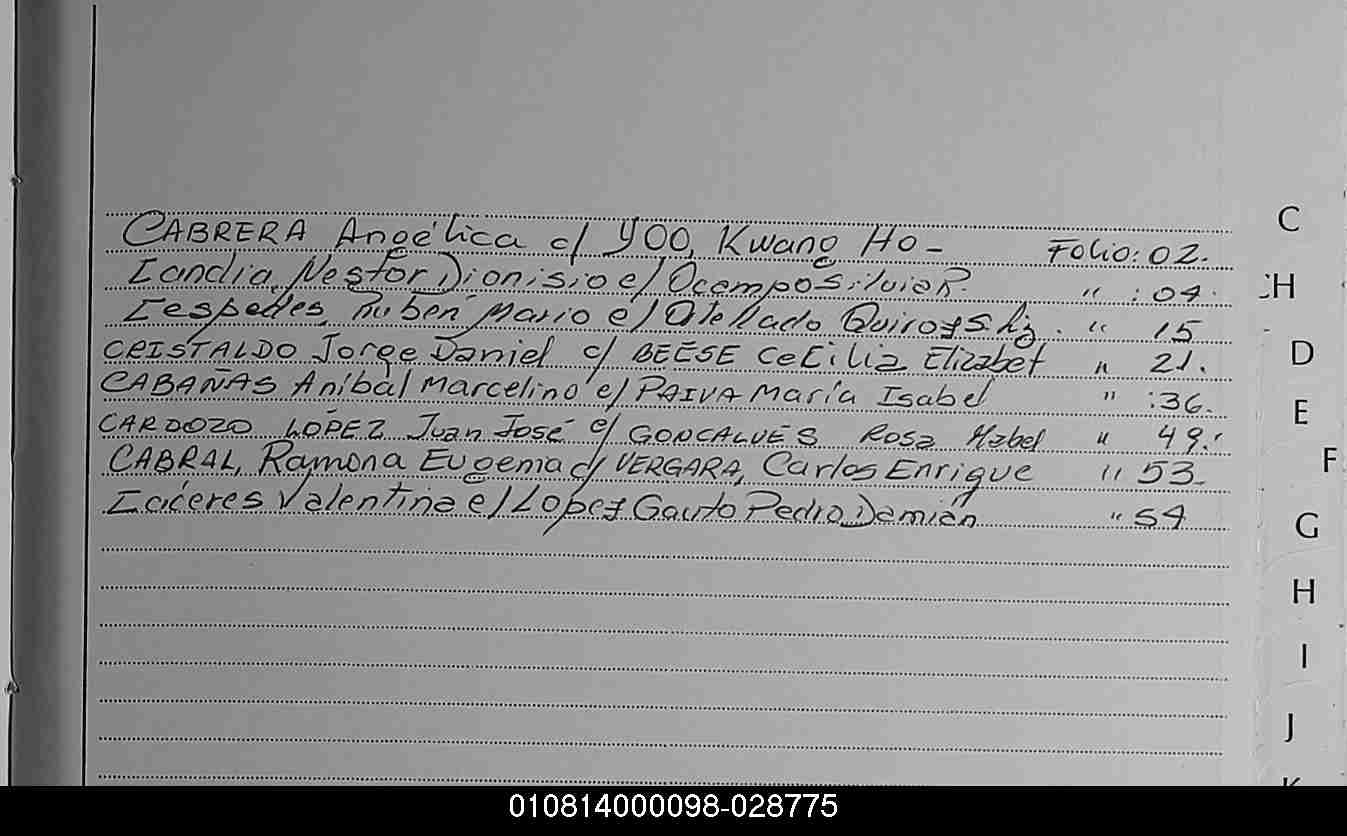 CABRERA Angélica c/ YOO, Kwang Ho - Folio: 02.
Candia, Nestor Dionisio c/ Ocampo Silvia R. " : 04.
Cespedes, Ruben Mario c/ Quiroz " 15
CRISTALDO Jorge Daniel c/ BEESE CeCilia Elizabet " 21.
CABAÑAS Aníbal Marcelino c/ PAIVA María Isabel " :36.
CARDOZO LÓPEZ Juan José c/ GONCALVES Rosa Mabel " 49.
CABRAL, Ramona Eugenia c/ VERGARA, Carlos Enrique " 53.
Cáceres Valentina c/ Lopez Gauto Pedro Damián " 54
C
CH
D
E
F
G
H
I
J
K
010814000098-028775